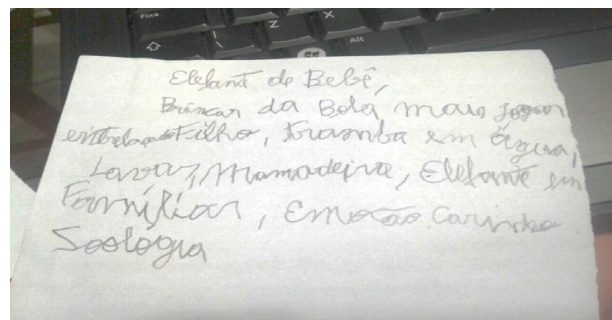 Fixa
Z
X
Alt
Elefant de Bebê,
Brincar da Bola mais Jogar
entrelaçado Filho, tromba em água,
Lavar, Mamadeira, Elefante em
Famíliar, Emoção Carinho
Soologia